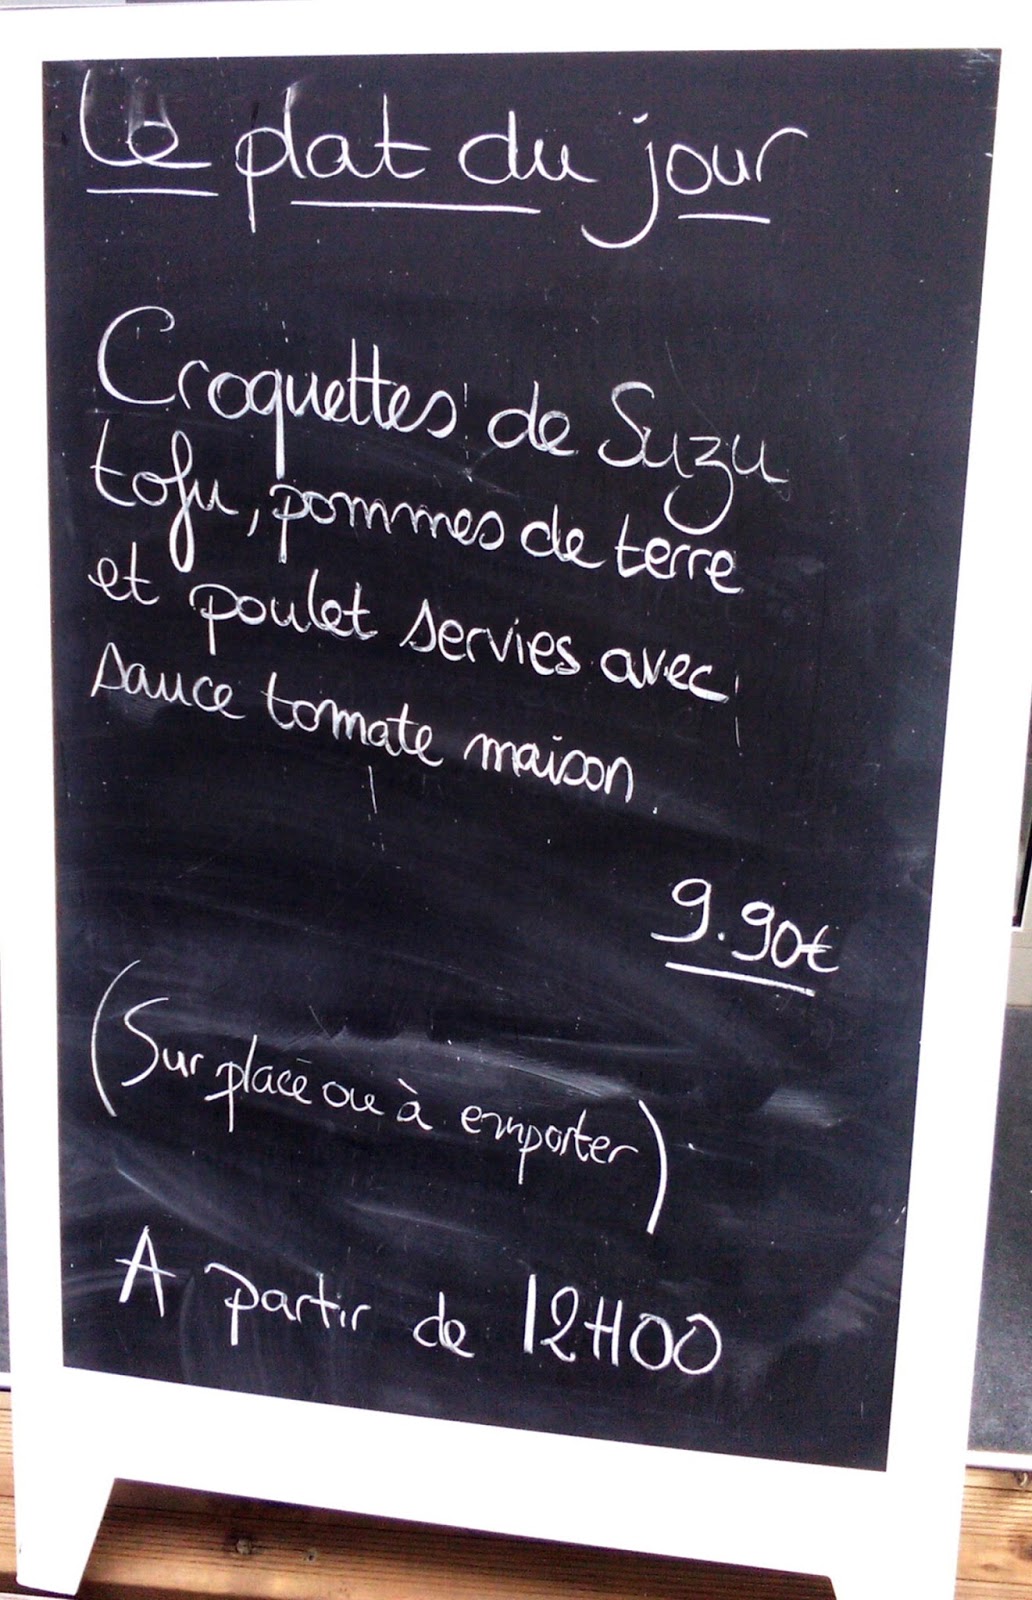 Le plat du jour
Croquettes de Suzu
tofu, pommes de terre
et poulet servies avec
sauce tomate maison.
9.90€
(Sur place ou à emporter)
A partir de 12H00